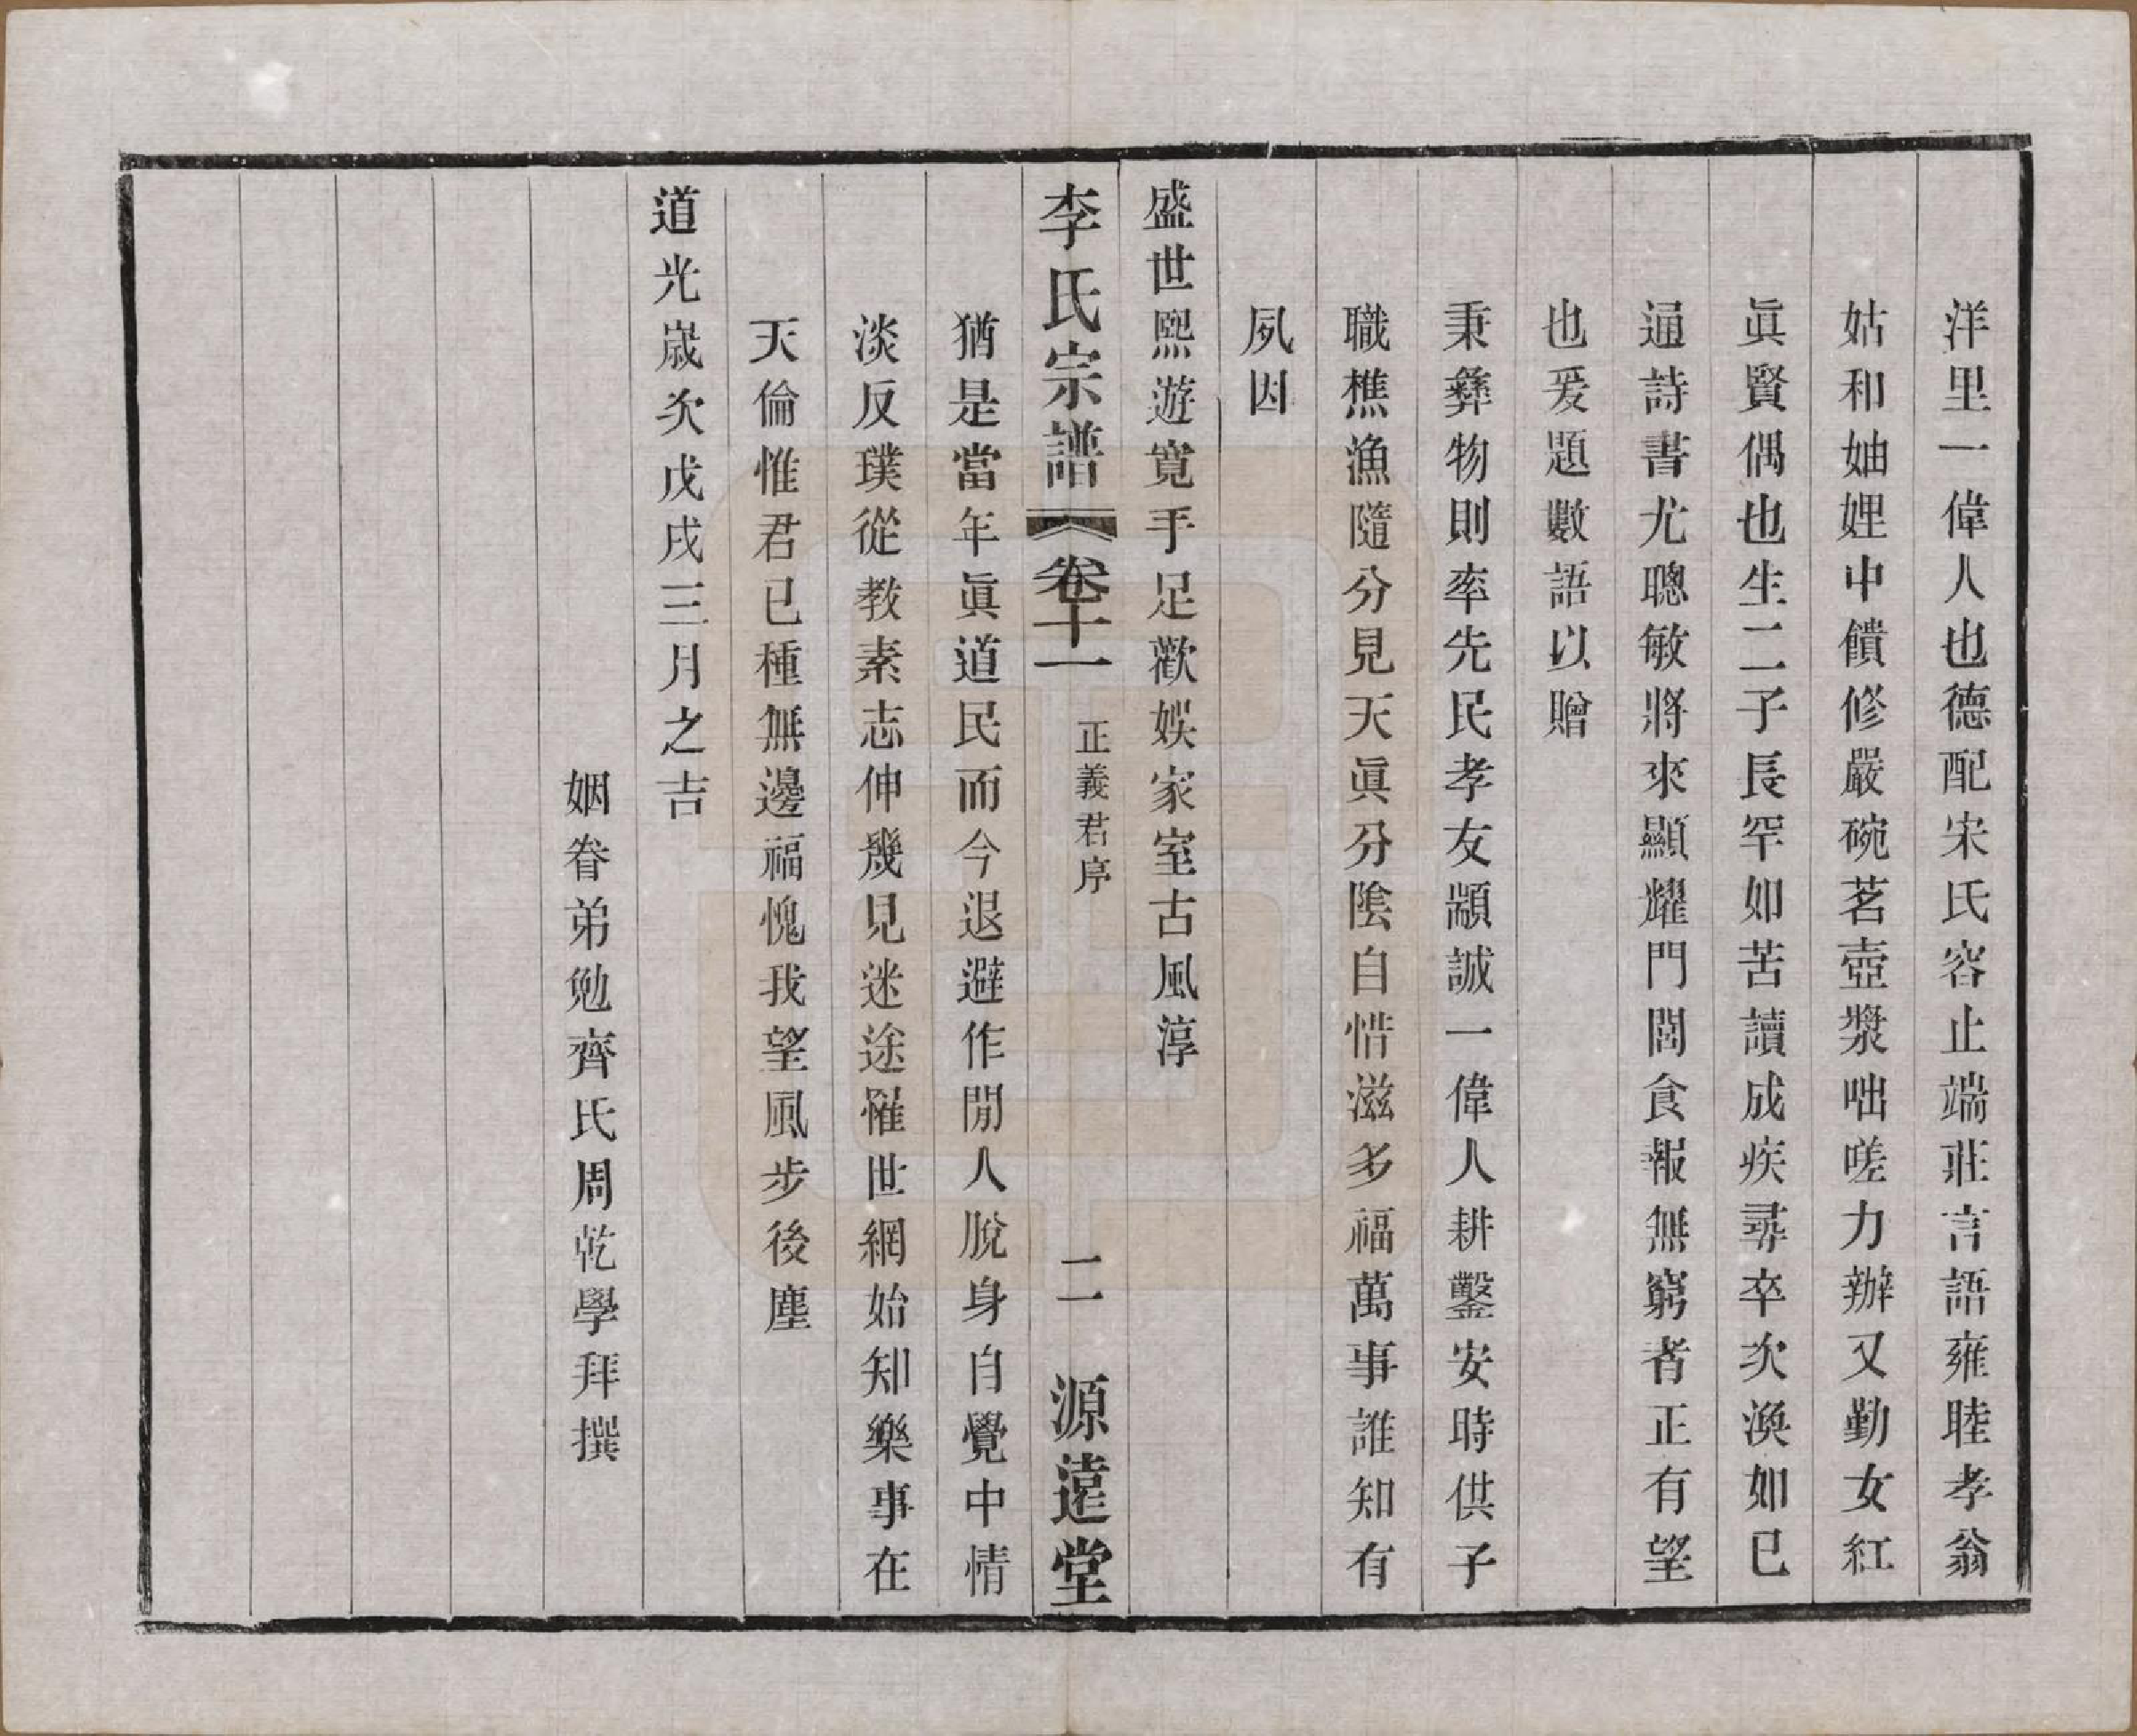 洋里一偉人也德配宋氏容止端莊言語雍睦孝翁
姑和妯娌中饋修嚴碗茗壺漿咄嗟力辦又勤女紅
眞賢偶也生二子長罕如苦讀成疾尋卒次渙如已
通詩書尤聰敏將來顯耀門閭食報無窮者正有望
也爰題數語以贈
秉彝物則率先民孝友顓誠一偉人耕鑿安時供子
職樵漁隨分見天眞分陰自惜滋多福萬事誰知有
夙因
盛世熙遊寬手足歡娛家室古風淳
李氏宗譜 卷十一 正義君序 二 源遠堂
猶是當年眞道民而今退避作閒人脫身自覺中情
淡反璞從教素志伸幾見迷途罹世網始知樂事在
天倫惟君已種無邊福愧我望風步後塵
道光歲次戊戌三月之吉
姻眷弟勉齊氏周乾學拜撰